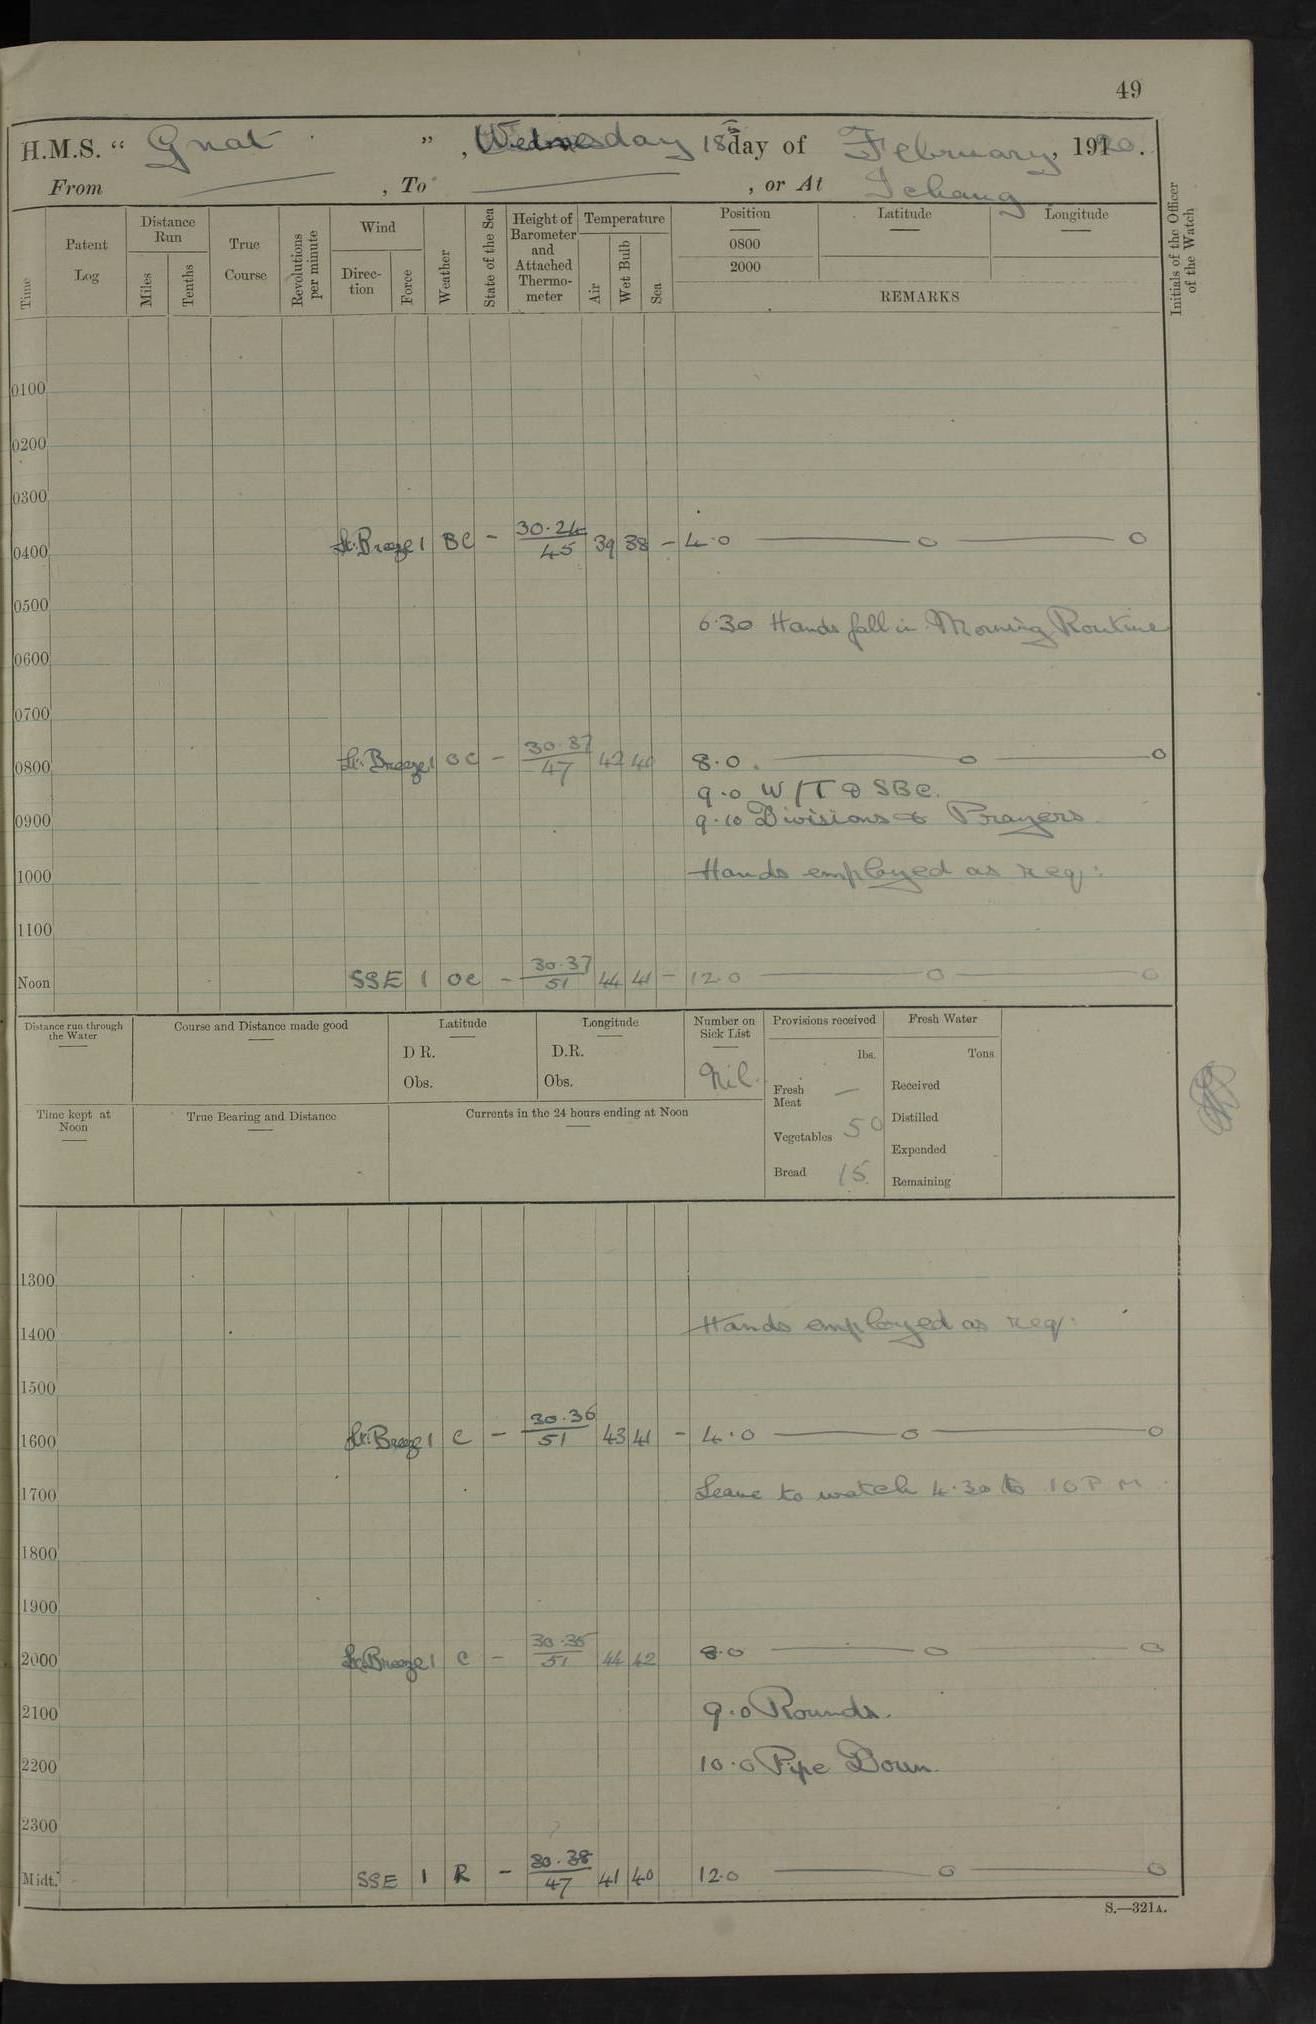 49
H.M.S. “ Gnat ” , Wednesday 18th day of February, 1920.
From — , To — , or At Ichang
Time
Patent Log
Distance Run
Miles
Tenths
True Course
Revolutions per minute
Wind
Direc-tion
Force
Weather
State of the Sea
Height of Barometer and Attached Thermo-meter
Temperature
Air
Wet Bulb
Sea
Position
0800
2000
Latitude
Longitude
REMARKS
Initials of the Officer of the Watch
0100
0200
0300
0400 Lt. Breeze 1 BC - 30.24/45 39 38 - 4.0 — o — o
0500
6.30 Hands fall in Morning Routine
0600
0700
0800 Lt. Breeze 1 OC - 30.37/47 42 40 8.0 — o — o
9.0 W/T & SBC.
0900 9.10 Divisions & Prayers
1000 Hands employed as req:
1100
Noon SSE 1 OC - 30.37/51 44 41 - 12.0 — o — o
Distance run through the Water
Course and Distance made good
Latitude
D R.
Obs.
Longitude
D.R.
Obs.
Number on Sick List
Nil.
Provisions received
lbs.
Fresh Meat —
Vegetables 50
Bread 15
Fresh Water
Tons
Received
Distilled
Expended
Remaining
Time kept at Noon
True Bearing and Distance
Currents in the 24 hours ending at Noon
1300
1400 Hands employed as req:
1500
1600 Lt. Breeze 1 C - 30.36/51 43 41 - 4.0 — o — o
1700 Leave to watch 4.30 to 10 P M.
1800
1900
2000 Lt. Breeze 1 C - 30.35/51 44 42 8.0 — o — o
2100 9.0 Rounds.
2200 10.0 Pipe Down.
2300
Midt. SSE 1 R - 30.38/47 41 40 12.0 — o — o
S.—321A.